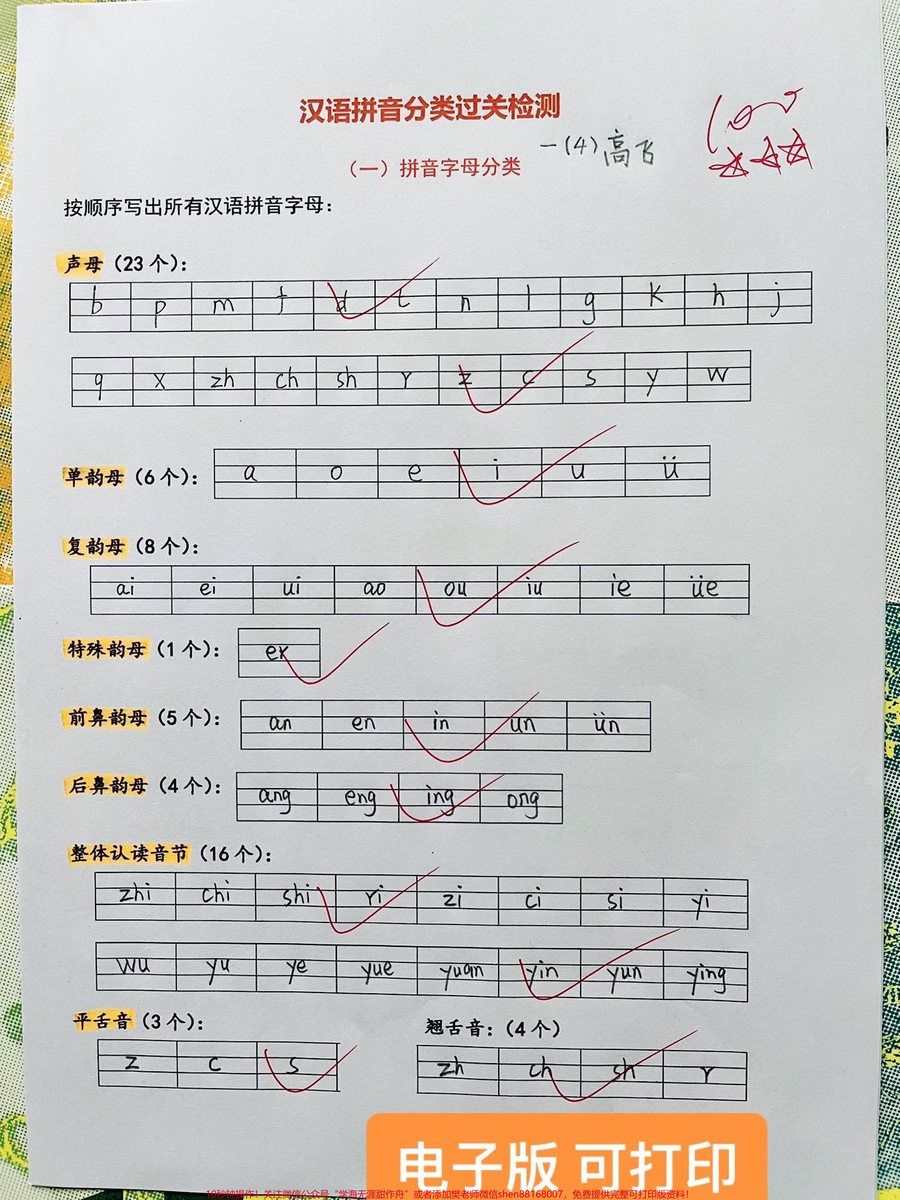 汉语拼音分类过关检测
100
一(4)高飞
（一）拼音字母分类
按顺序写出所有汉语拼音字母：
声母（23个）：
b p m f d t n l g k h j
q x zh ch sh r z c s y w
单韵母（6个）：
a o e i u ü
复韵母（8个）：
ai ei ui ao ou iu ie üe
特殊韵母（1个）：
er
前鼻韵母（5个）：
an en in un ün
后鼻韵母（4个）：
ang eng ing ong
整体认读音节（16个）：
zhi chi shi ri zi ci si yi
wu yu ye yue yuan yin yun ying
平舌音（3个）：
z c s
翘舌音：（4个）
zh ch sh r
电子版 可打印
10秒钟操作！关注微信公众号“学海无涯甜作舟”或者添加樊老师微信shen88168007，免费提供完整可打印版资料！